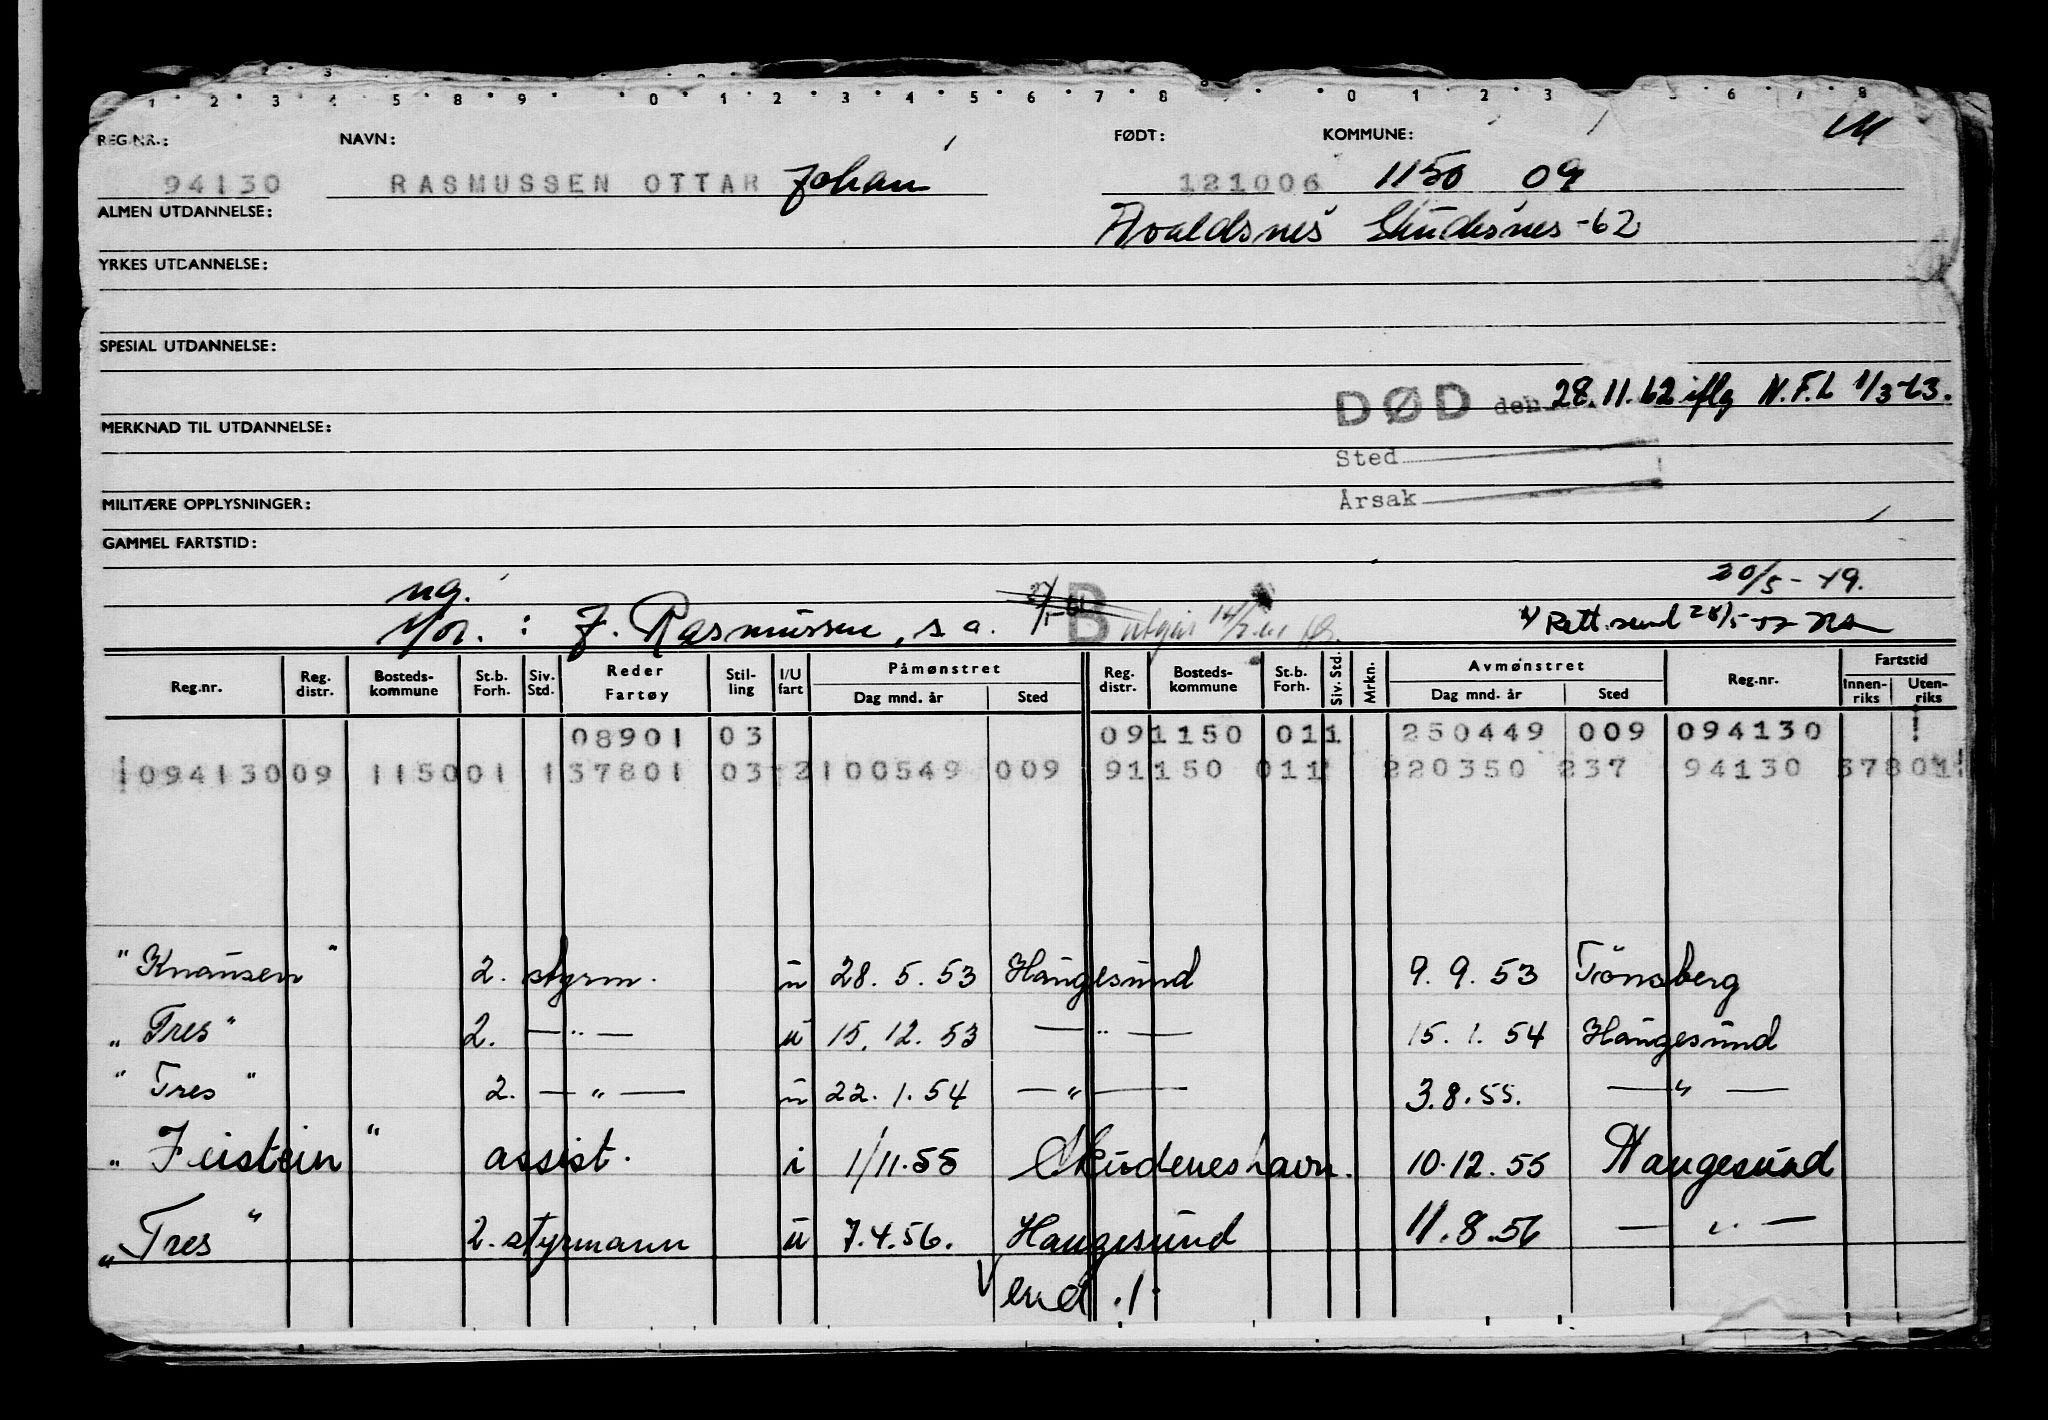 REG.NR.: NAVN: FØDT: KOMMUNE:
94130 RASMUSSEN OTTAR Johan 121006 1150 09
ALMEN UTDANNELSE: Avaldsnes Skudesnes -62
YRKES UTDANNELSE:
SPESIAL UTDANNELSE:
DØD den 28.11.62 iflg N.F.L 1/3-63.
MERKNAD TIL UTDANNELSE:
Sted
MILITÆRE OPPLYSNINGER: Årsak
GAMMEL FARTSTID:
ug. 20/5-49.
Mor. : J. Rasmussen, s a. B utgår Rett. send 28/5-52
Reg.nr. Reg. distr. Bosteds-kommune St.b. Forh. Siv. Std. Reder Fartøy Stil-ling I/U fart Påmønstret Dag mnd. år Sted Reg. distr. Bosteds-kommune St.b. Forh. Siv. Std. Mrkn. Avmønstret Dag mnd. år Sted Reg.nr. Fartstid Innen-riks Uten-riks
08901 03 091150 011 250449 009 094130
09413009 115001 137801 03-2 100549 009 91150 011 220350 237 94130 37801
"Knausen" 2. styrm. u 28. 5. 53 Haugesund 9. 9. 53 Tønsberg
"Tres" 2. — " — u 15. 12. 53 — " — 15. 1. 54 Haugesund
"Tres" 2. — " — u 22. 1. 54 — " — 3.8.55. — " —
"Feistein" assist. i 1/11.55 Skudeneshavn. 10.12.55 Haugesund
"Tres" 2. styrmann u 7.4.56. Haugesund 11.8.56 — " —
Vend ./.